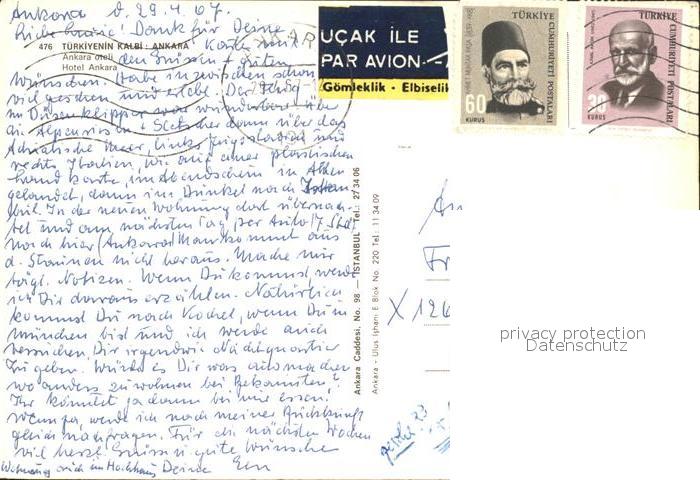 Ankara d. 29.4.67.
Dank für Deine
Karte mit
476 TÜRKİYENİN KALBİ: ANKARA
Ankara oteli
Hotel Ankara
den Grüssen + guten
Wünschen. Habe inzwischen schon
viel gesehen und erlebt. Der Flug
im Düsenklipper war wunderbar über
die Alpenriesen + Gletscher dann über das
Adriatische Meer, links Jugoslavien und
rechts Italien, wie auf einer plastischen
Landkarte, im Abendschein in Athen
gelandet, dann im Dunkel nach Istan
bul. In der neuen Wohnung dort übernach-
tet und am nächsten Tag per Auto 7 Std.
nach hier (Ankara) Man kommt aus
d. Staunen nicht heraus. Mache mir
tägl. Notizen. Wenn Du kommst, werde
ich Dir daraus erzählen. Natürlich
kommst Du nach Kochel, wenn Du in
München bist und ich werde auch
versuchen, Dir irgendwie Nachtquartier
zu geben. Würde es Dir was ausmachen
wo anders zu wohnen bei Bekannten?
Ihr könntet ja dann bei mir essen.
werde ich nach meiner Rückkunft
gleich nachfragen. Für die nächsten Wochen
viel herzl. Grüsse u. gute Wünsche
Wohnung auch im Hochhaus Deine
UÇAK İLE
PAR AVION
Gömleklik - Elbiselik
TÜRKİYE CUMHURİYETİ POSTALARI
60
KURUŞ
TÜRKİYE CUMHURİYETİ POSTALARI
KURUŞ
Ankara Caddesi, No. 98 — İSTANBUL Tel.: 27 34 06
Ankara - Ulus İşhanı E Blok No. 220 Tel.: 11 34 09
Fr
X 126
privacy protection
Datenschutz